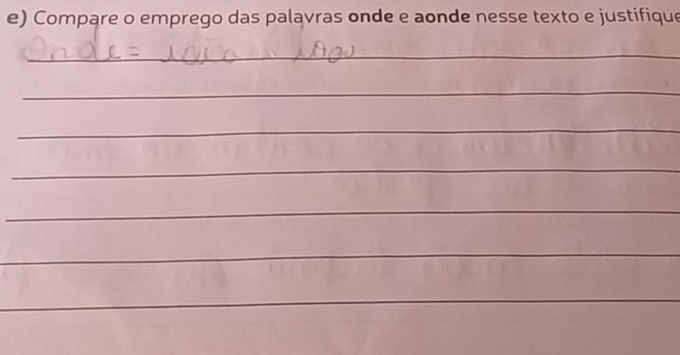 e) Compare o emprego das palavras onde e aonde nesse texto e justifique
Onde =